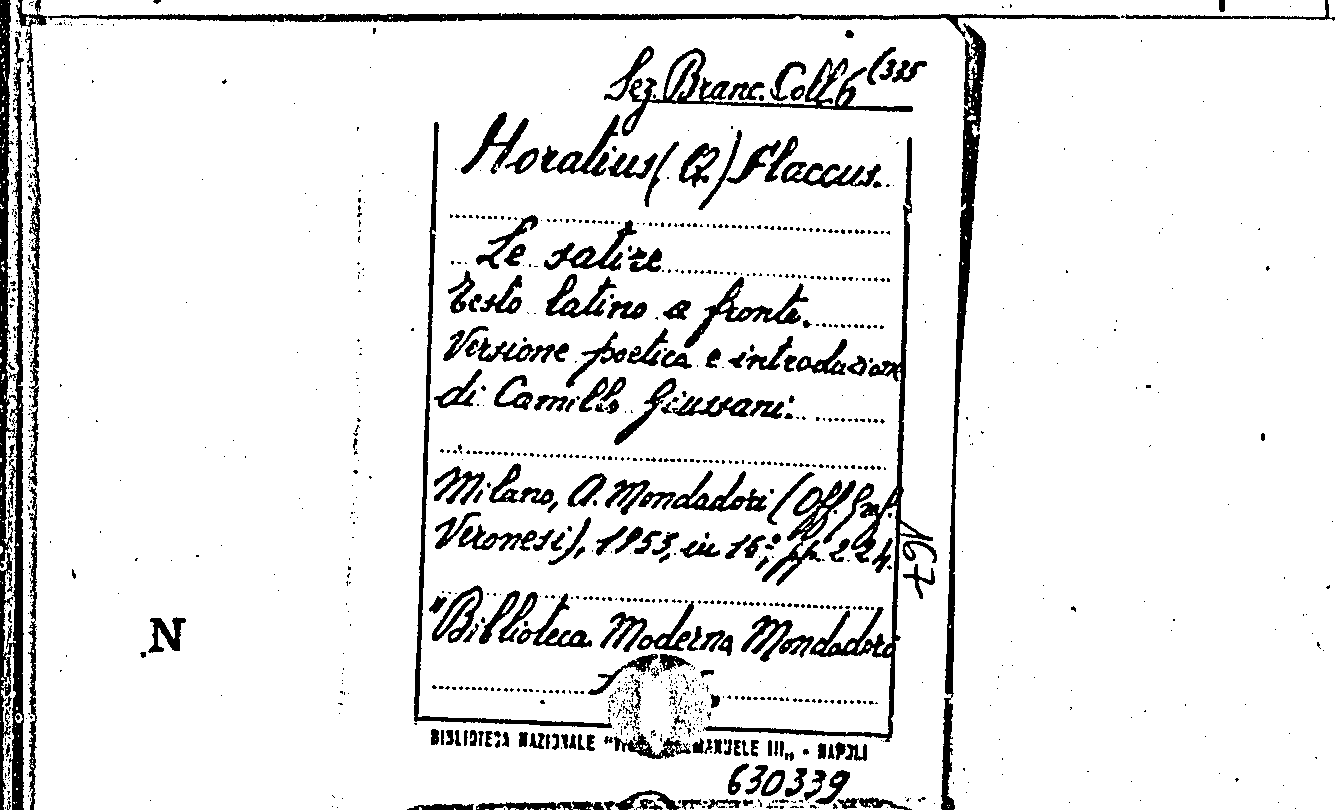 Sez. Branc. Coll. 6 (335
Horatius (Q.) Flaccus.
Le satire
Testo latino a fronte.
Versione poetica e introduzione
di Camillo Giussani.
Milano, A. Mondadori (Off. Graf.
Veronesi), 1953, in 16°, pp. 224.
"Biblioteca Moderna Mondadori
BIBLIOTECA NAZIONALE " EMANUELE III„ - NAPOLI
630339
167
N